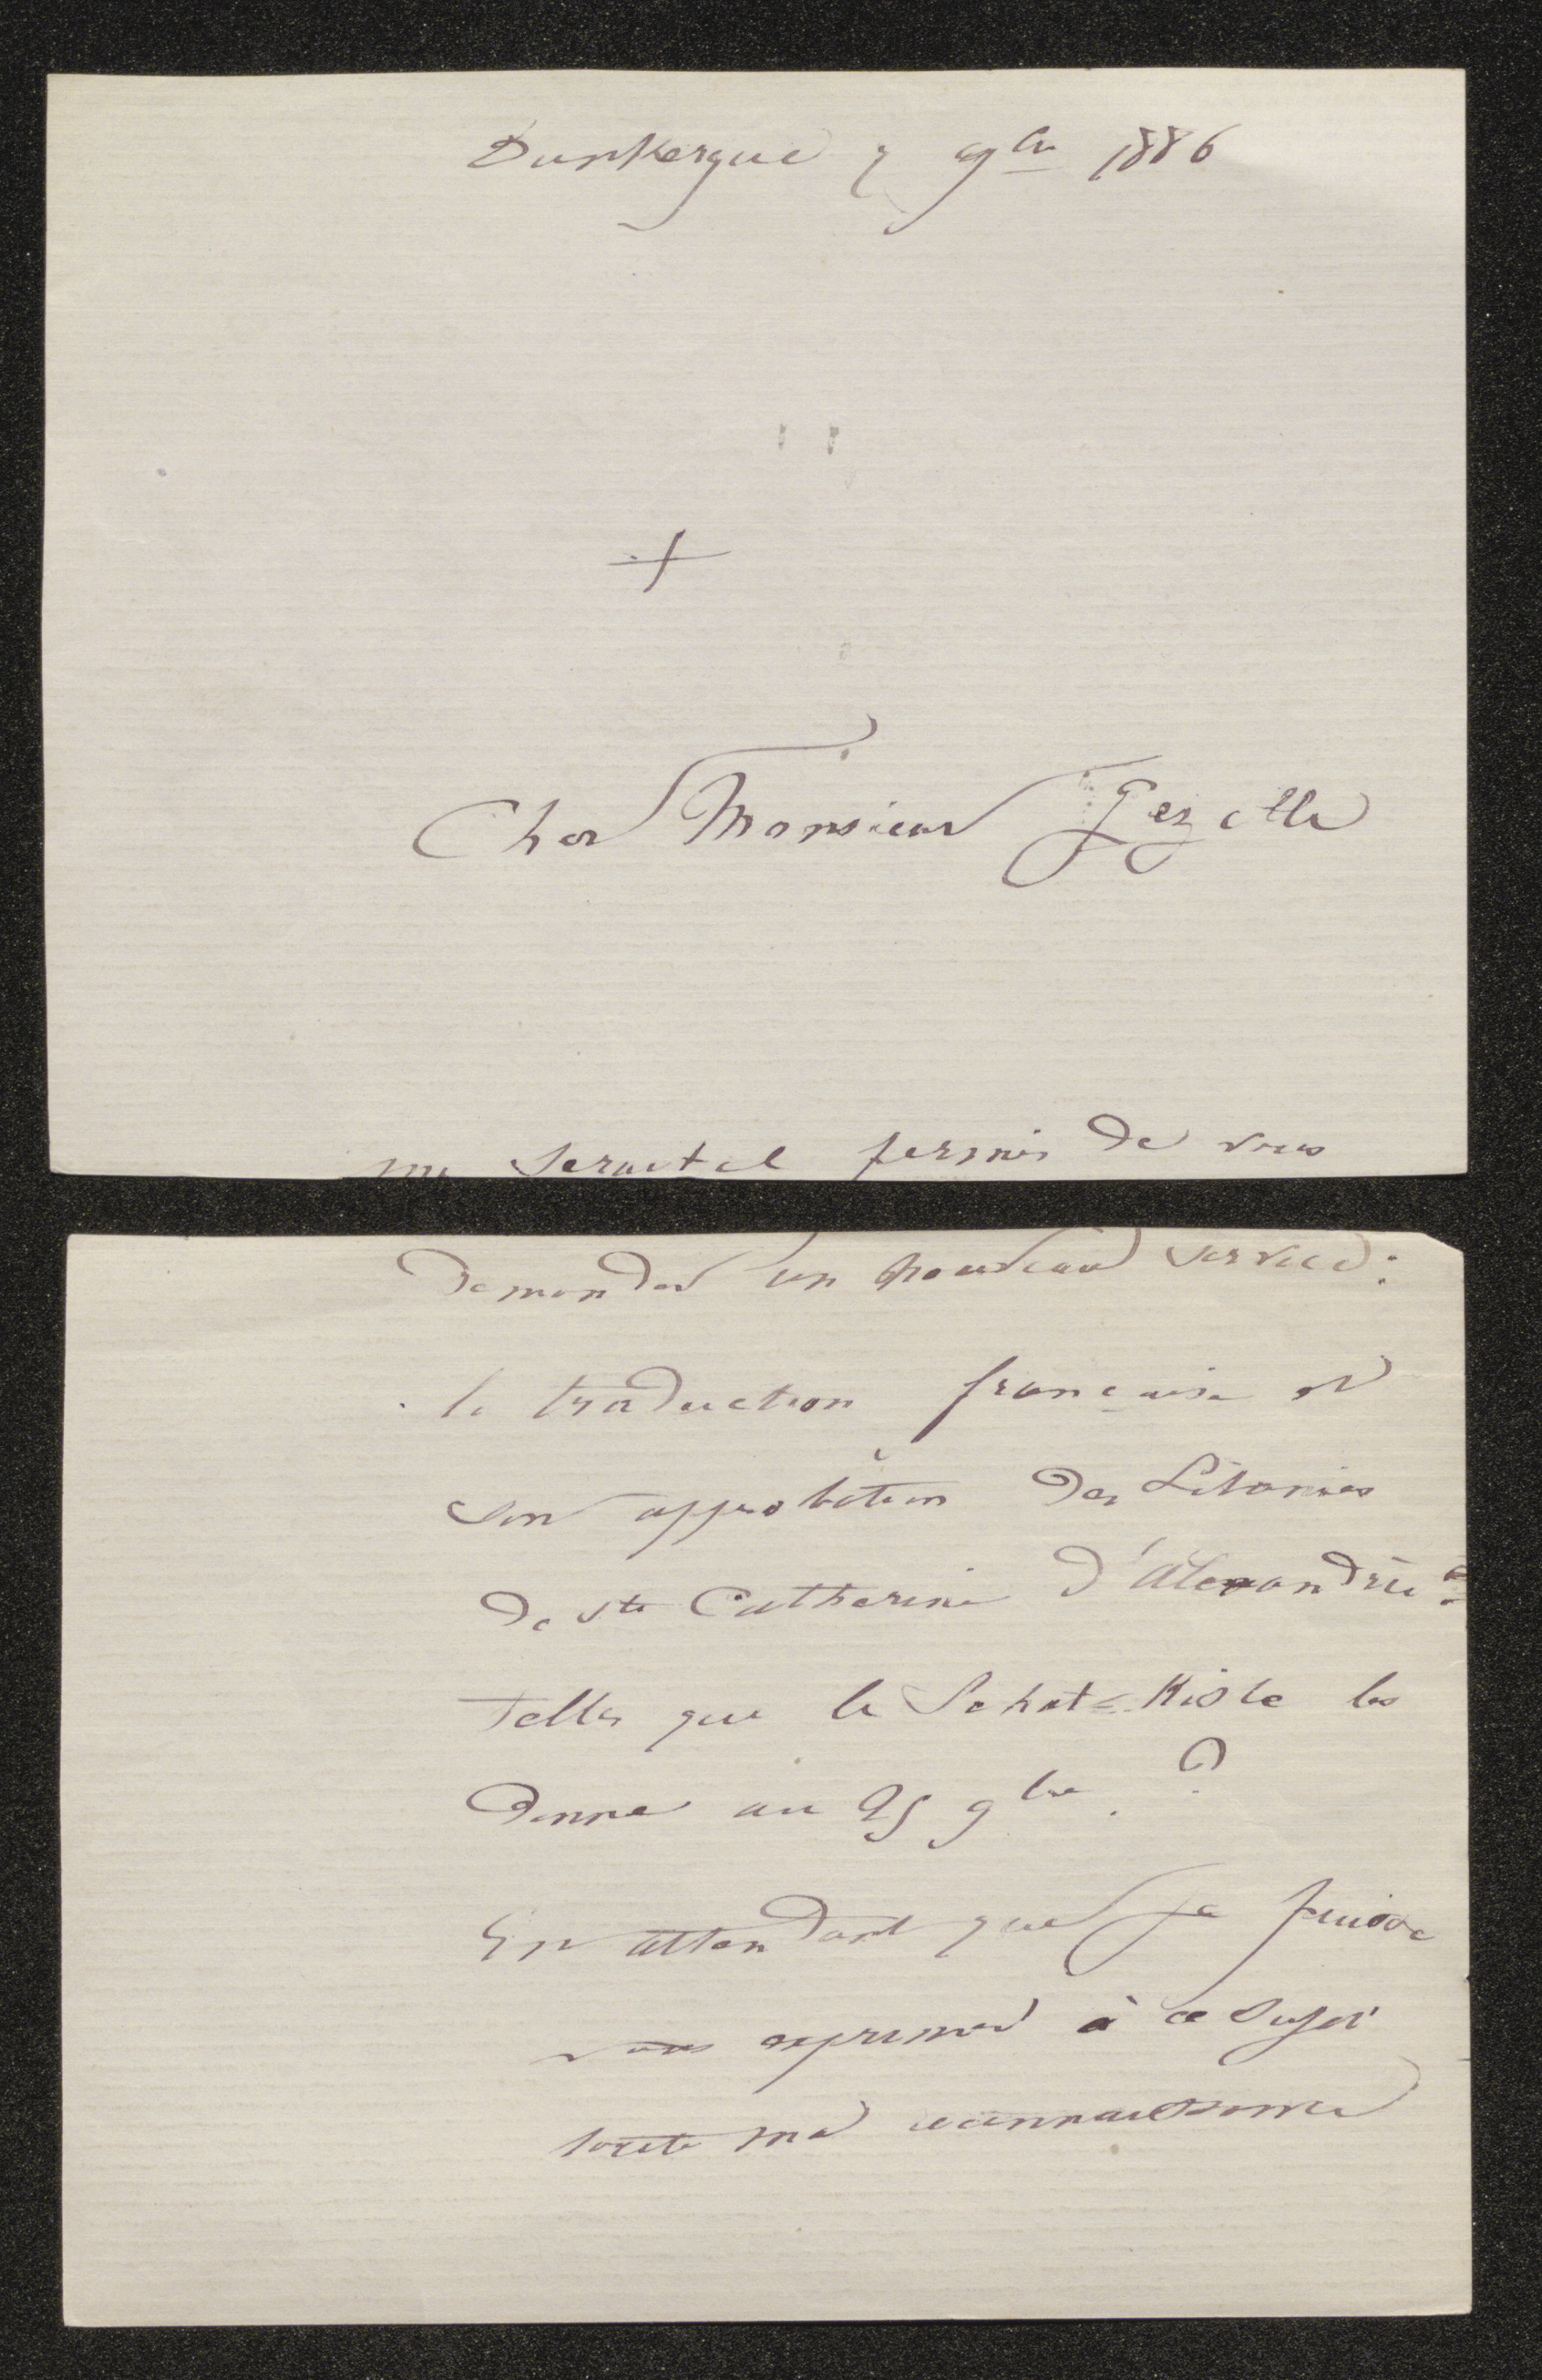 Dunkerque 7 9bre 1886
+
Cher Monsieur Gezelle
me serait-il permis de vous
demander un nouveau service:
la traduction française et
son approbation des Litanies
de Ste Catherine d'Alexandrie
telles que le Schat=Kiste les
donne au 25 9bre. ?
En attendant que je puisse
vous exprimer à ce sujet
toute ma reconnaissance